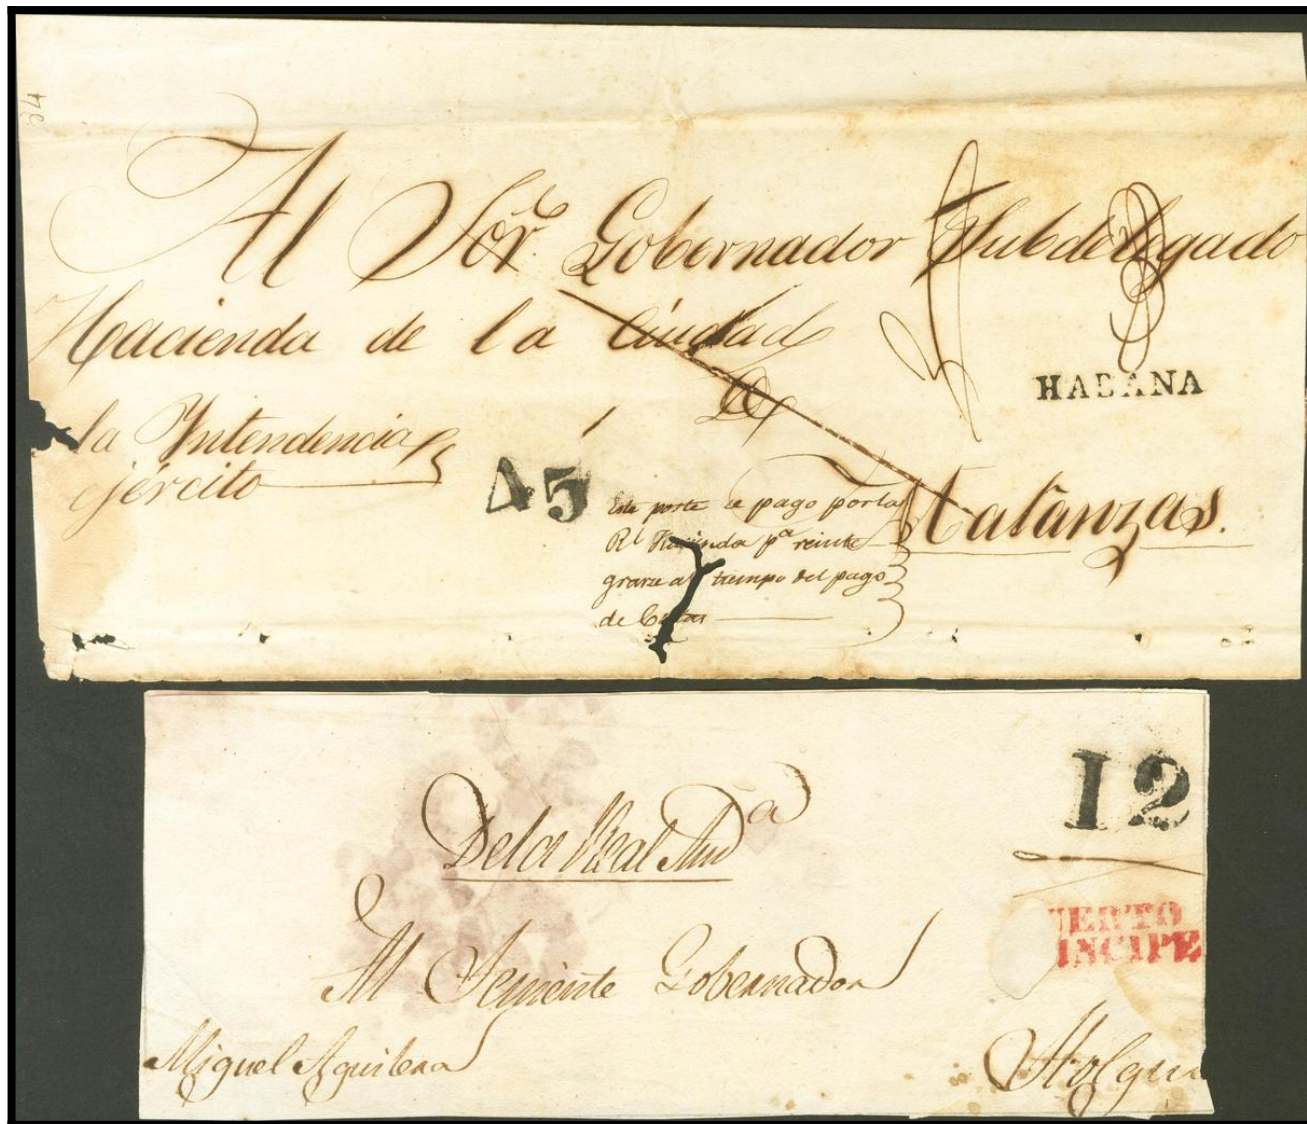 Al Sor. Gobernador Subdelegado
Hacienda de la Ciudad
De
HABANA
la Intendencia
ejército
45
Matanzas.
Este porte se pago por la
Rl Hacienda pa reinte
grarse al tiempo del pago
de
12
De la Real Auda
UERTO
INCIPE
Al Teniente Gobernador
Miguel Aguilera
Holguin